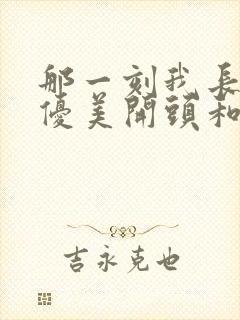 那一刻我長
優美開頭和
吉永克也